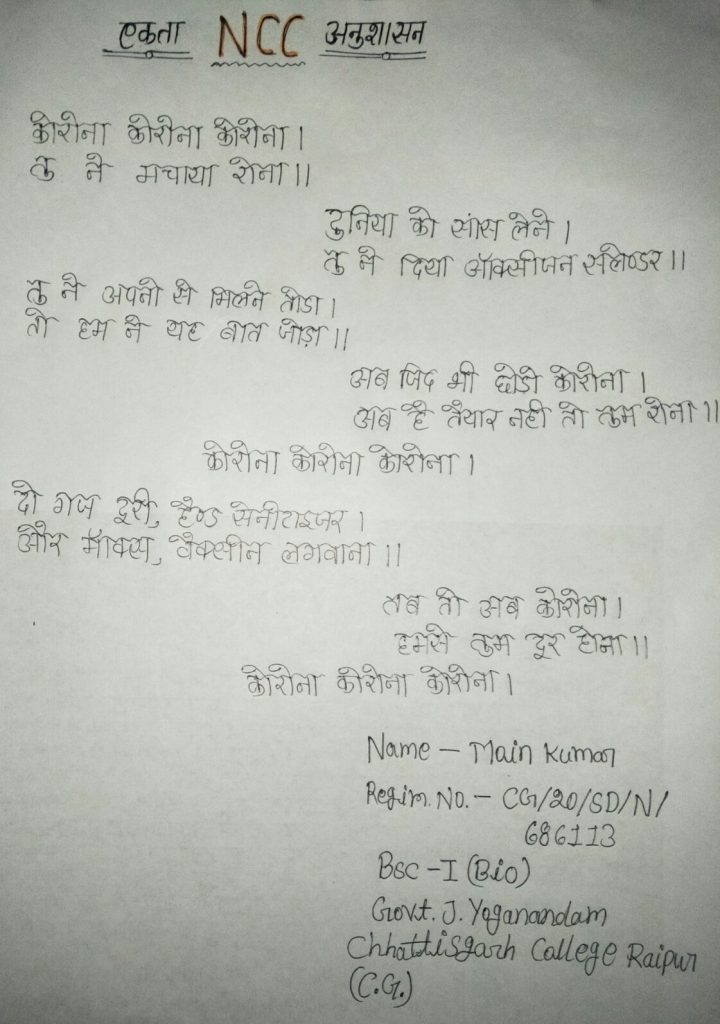 एकता NCC अनुशासन
कोरोना कोरोना कोरोना।
तु ने मचाया रोना॥
दुनिया को सांस लेने।
तु ने दिया ऑक्सीजन सलेण्डर॥
तु ने अपनो से मिलने तोडा।
तो हम ने यह बात जोड़ा॥
अब जिद भी छोडो कोरोना।
अब है तैयार नही तो तुम रोना॥
कोरोना कोरोना कोरोना।
दो गज दूरी, हैण्ड सेनीटाइजर।
और मॉक्स, वैक्सीन लगवाना॥
तब तो अब कोरोना।
हमसे तुम दूर होना॥
कोरोना कोरोना कोरोना।
Name – Main Kumar
Regim. No. – CG/20/SD/N/
686113
Bsc – I (Bio)
Govt. J. Yoganandam
Chhattisgarh College Raipur
(C.G.)